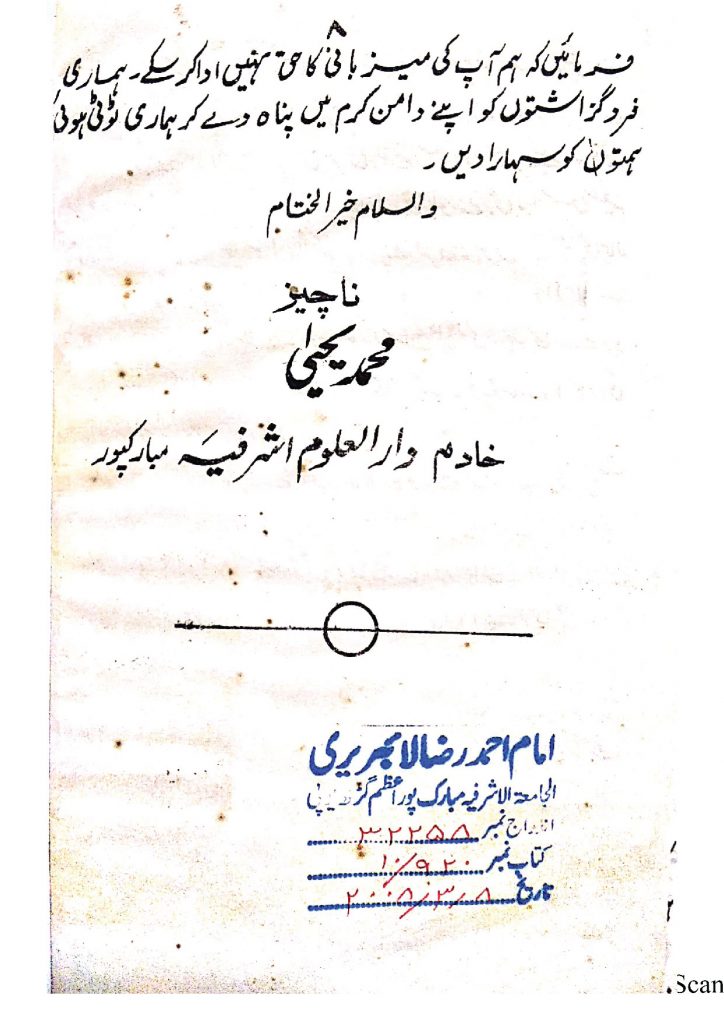 ۸
فرمائیں کہ ہم آپ کی میزبانی کا حق نہیں ادا کر سکے۔ ہماری
فروگزاشتوں کو اپنے دامن کرم میں پناہ دے کر ہماری ٹوٹی ہوئی
ہمتوں کو سہارا دیں۔
والسلام خیر الختام
ناچیز
محمد یحییٰ
خادم دارالعلوم اشرفیہ مبارکپور
امام احمد رضا لائبریری
الجامعۃ الاشرفیہ مبارک پور اعظم گڑھ یوپی
اندراج نمبر ۳۲۲۵۸
کتاب نمبر ۱۰/۹۲۰
تاریخ ۲۰۰۸/۳/۸
Scan